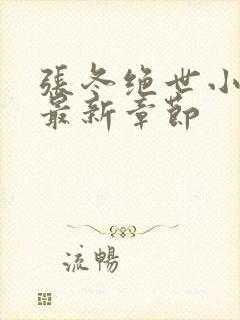 張冬绝世小
最新章節
流暢